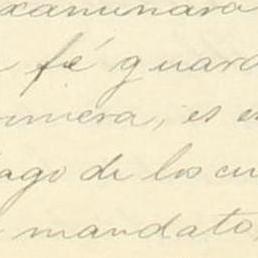 xaminara
fé guard
imera, es e
ago de los cu
mandato,